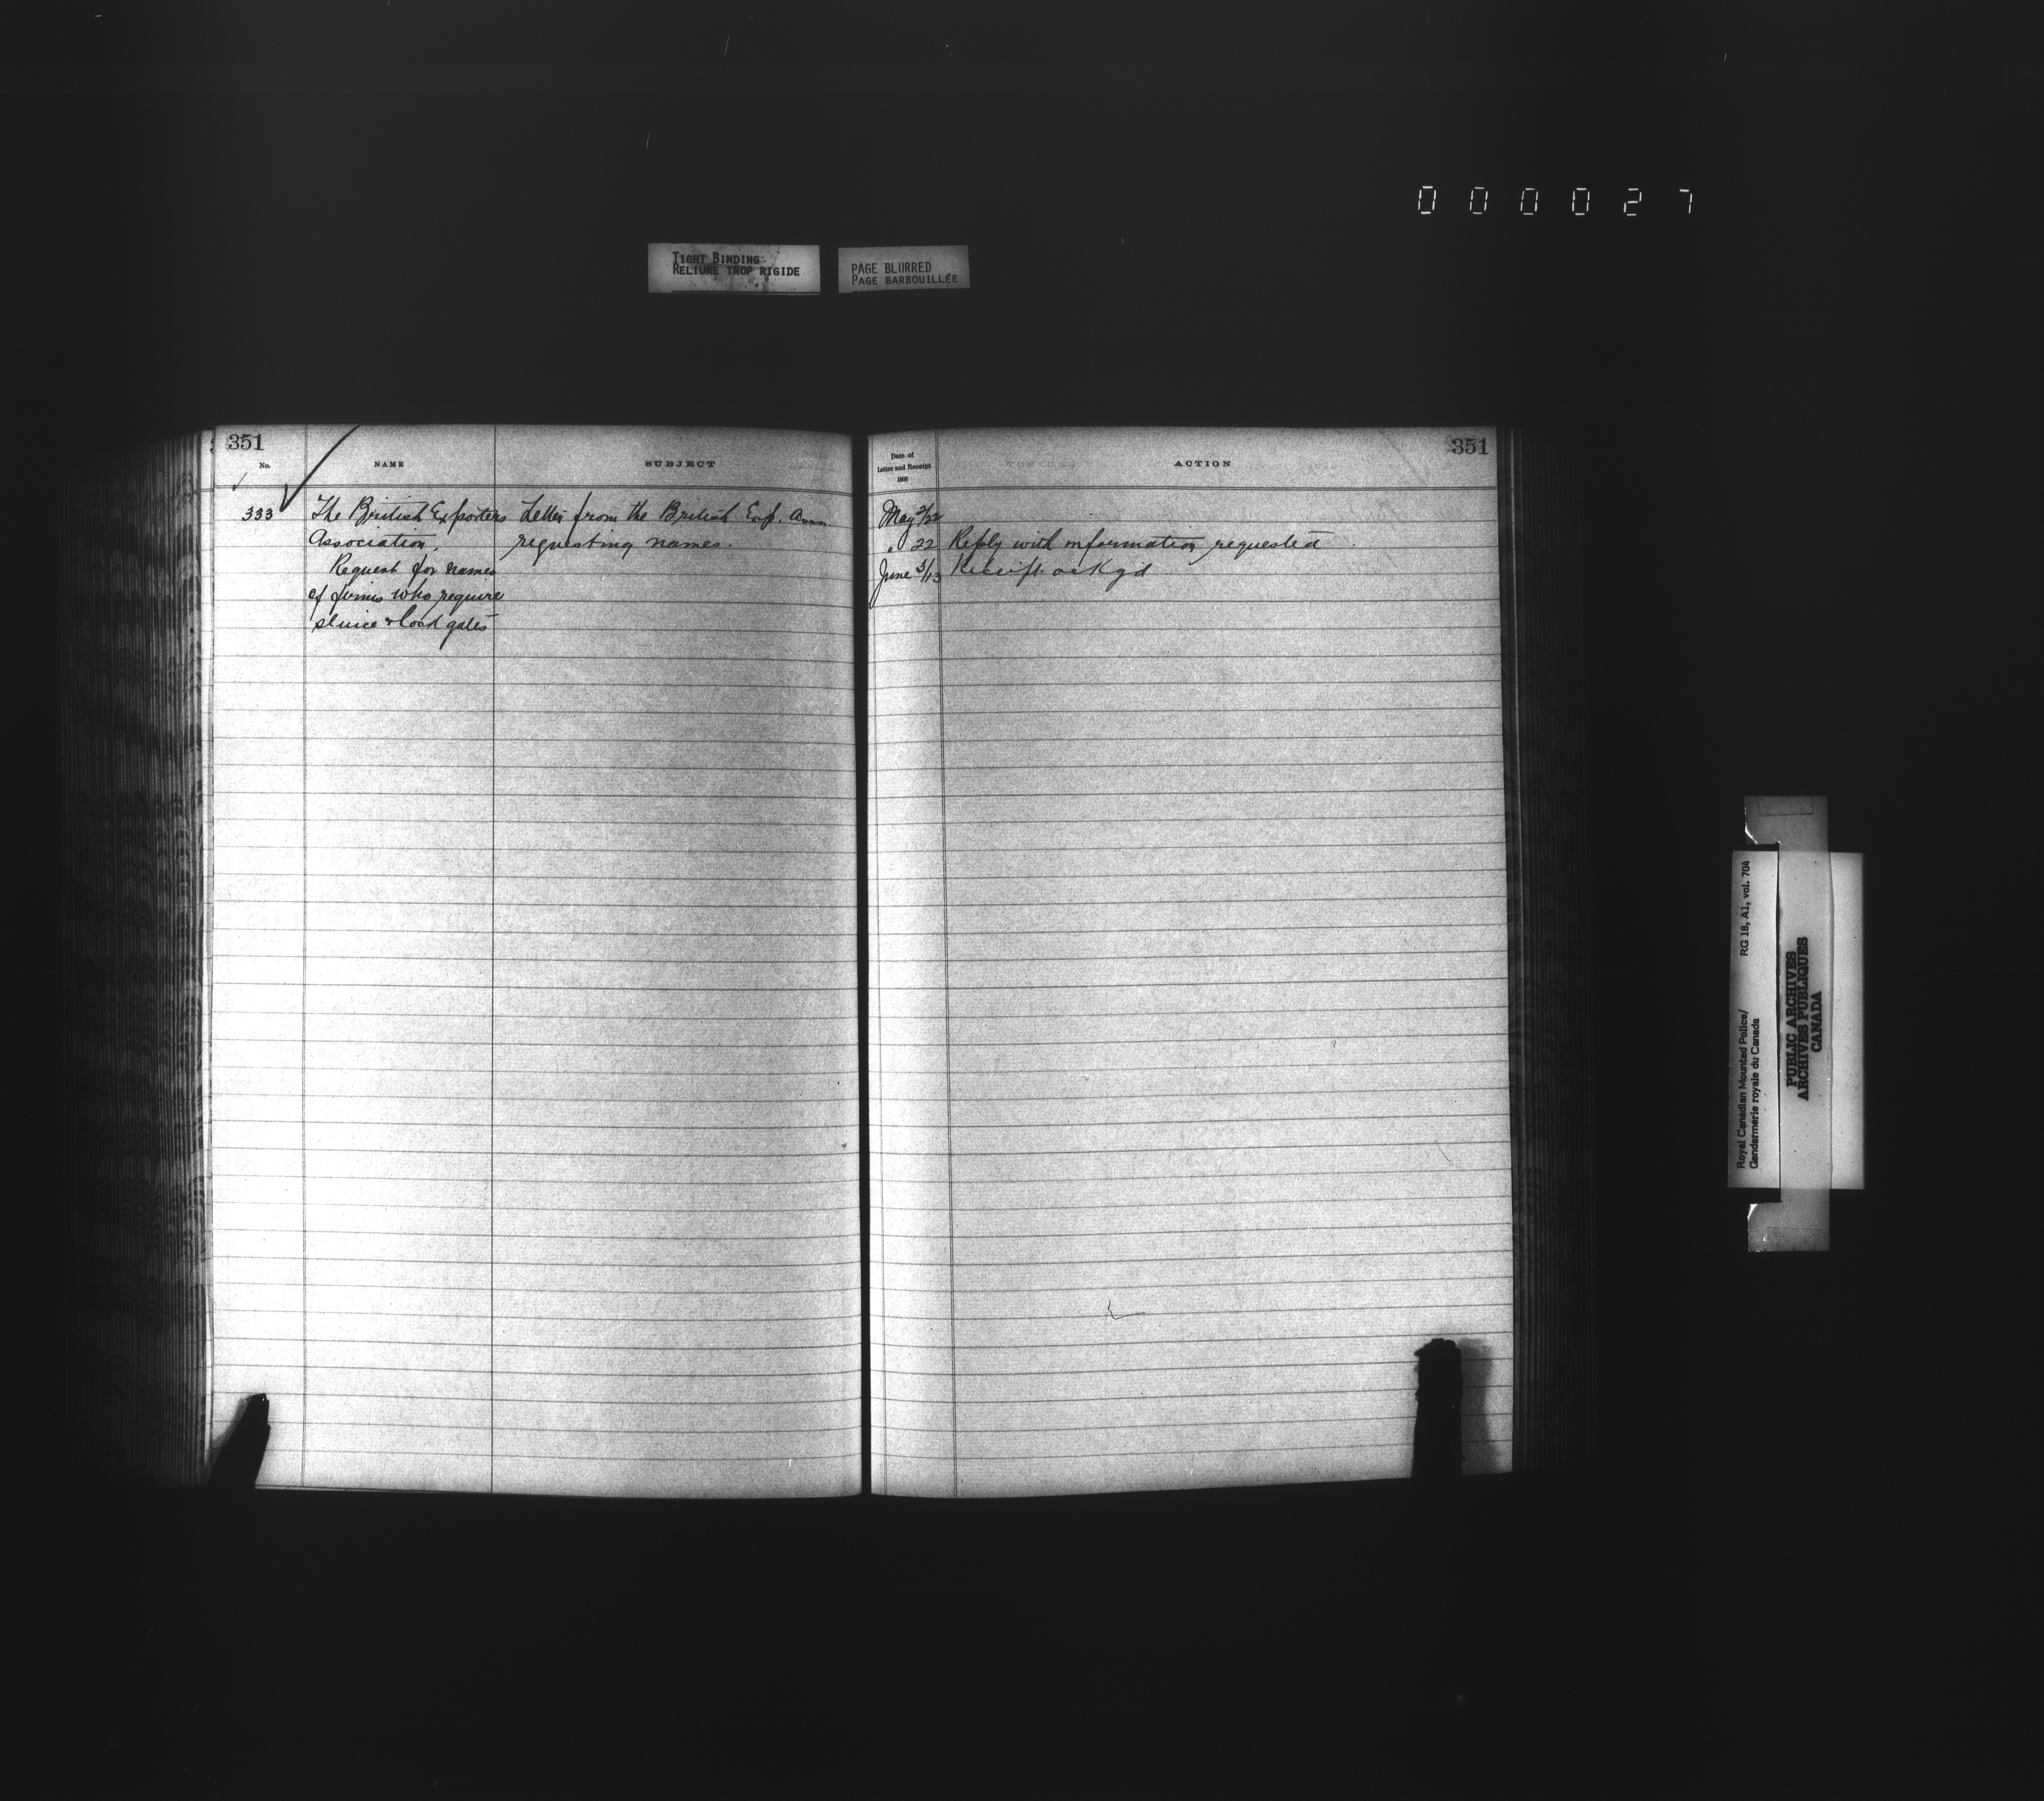 000027
TIGHT BINDING
RELIURE TROP RIGIDE
PAGE BLURRED
PAGE BARBOUILLÉE
351
No.
NAME
SUBJECT
333
The British Exporters
Association,
Request for names
of firms who require
sluice & lock gates
Letter from the British Exp. Assn
requesting names.
351
Date of
Letter and Receipt
ACTION
May 2/22
" 22 Reply with information requested
June 3/13 Receipt ackgd
Royal Canadian Mounted Police/ RG 18, A1, vol. 704
Gendarmerie royale du Canada
PUBLIC ARCHIVES
ARCHIVES PUBLIQUES
CANADA